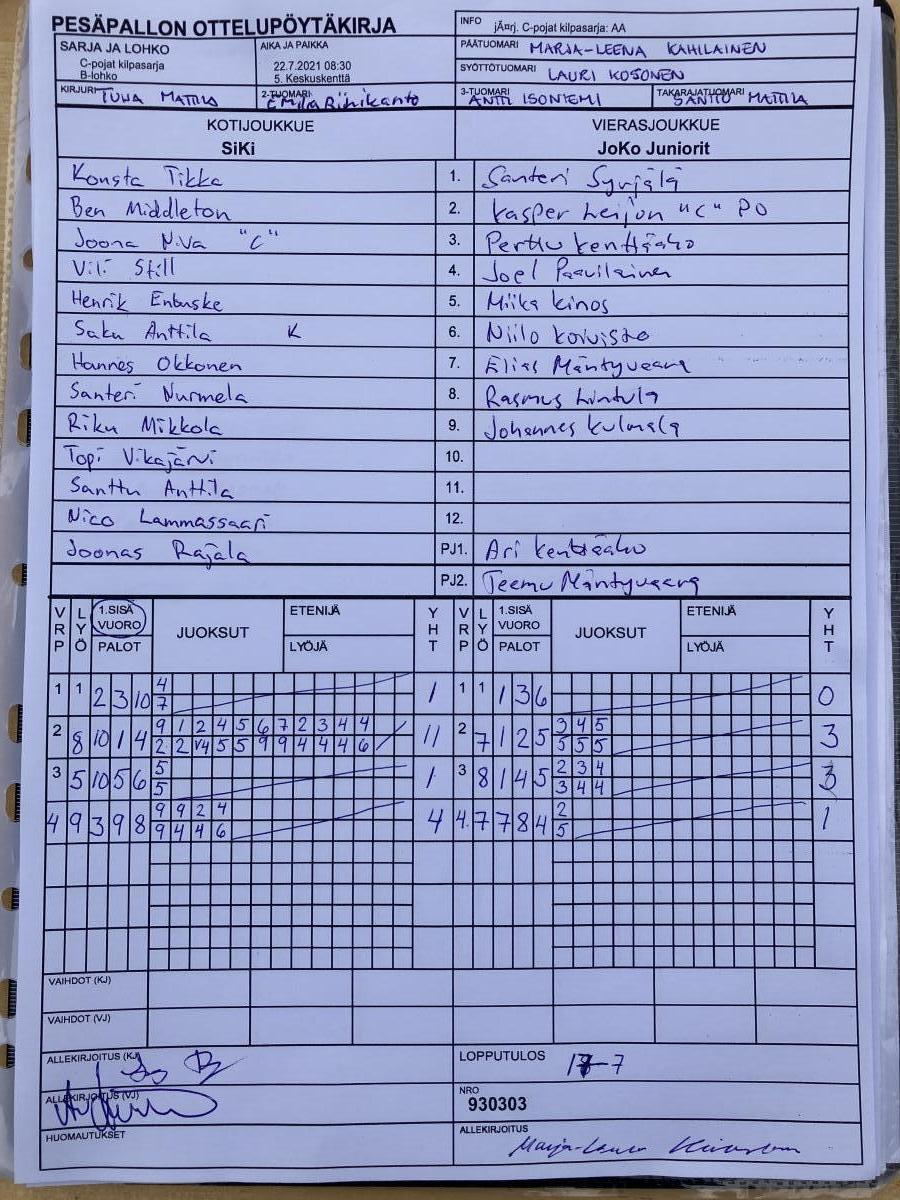 PESÄPALLON OTTELUPÖYTÄKIRJA
INFO jÃ¤rj. C-pojat kilpasarja: AA
SARJA JA LOHKO
C-pojat kilpasarja
B-lohko
AIKA JA PAIKKA
22.7.2021 08:30
5. Keskuskenttä
PÄÄTUOMARI MARJA-LEENA KAHILAINEN
SYÖTTÖTUOMARI LAURI KOSONEN
KIRJURI TUIJA MATTILA
2-TUOMARI
3-TUOMARI ANTTI ISONIEMI
TAKARAJATUOMARI SANTTU MATTILA
KOTIJOUKKUE
SiKi
VIERASJOUKKUE
JoKo Juniorit
Konsta Tikka 1. Santeri Syrjälä
Ben Middleton 2. Kasper Leijon "C" PO
Joona Niva "C" 3. Perttu Kenttäaho
Vili Still 4. Joel Paavilainen
Henrik Enbuske 5. Miika Kinos
Saku Anttila K 6. Niilo Koivisto
Hannes Okkonen 7. Elias Mäntyvaara
Santeri Nurmela 8. Rasmus Lintula
Riku Mikkola 9. Johannes Kulmala
Topi Vikajärvi 10.
Santtu Anttila 11.
Nico Lammassaari 12.
Joonas Rajala PJ1. Ari Kenttäaho
PJ2. Teemu Mäntyvaara
VRP LYÖ 1.SISÄ VUORO PALOT JUOKSUT ETENIJÄ LYÖJÄ YHT VRP LYÖ 1.SISÄ VUORO PALOT JUOKSUT ETENIJÄ LYÖJÄ YHT
4
1 1 2 3 10 1 1 1 1 3 6 0
7
9 1 2 4 5 6 7 2 3 4 4 3 4 5
2 8 10 1 4 11 2 7 1 2 5 3
2 2 4 5 5 9 9 4 4 4 6 5 5 5
5 2 3 4
3 5 10 5 6 1 3 8 1 4 5 3
5 3 4 4
9 9 2 4 2
4 9 3 9 8 4 4. 7 7 8 4 1
9 4 4 6 5
VAIHDOT (KJ)
VAIHDOT (VJ)
ALLEKIRJOITUS (KJ)
LOPPUTULOS 17-7
ALLEKIRJOITUS (VJ)
NRO
930303
HUOMAUTUKSET
ALLEKIRJOITUS